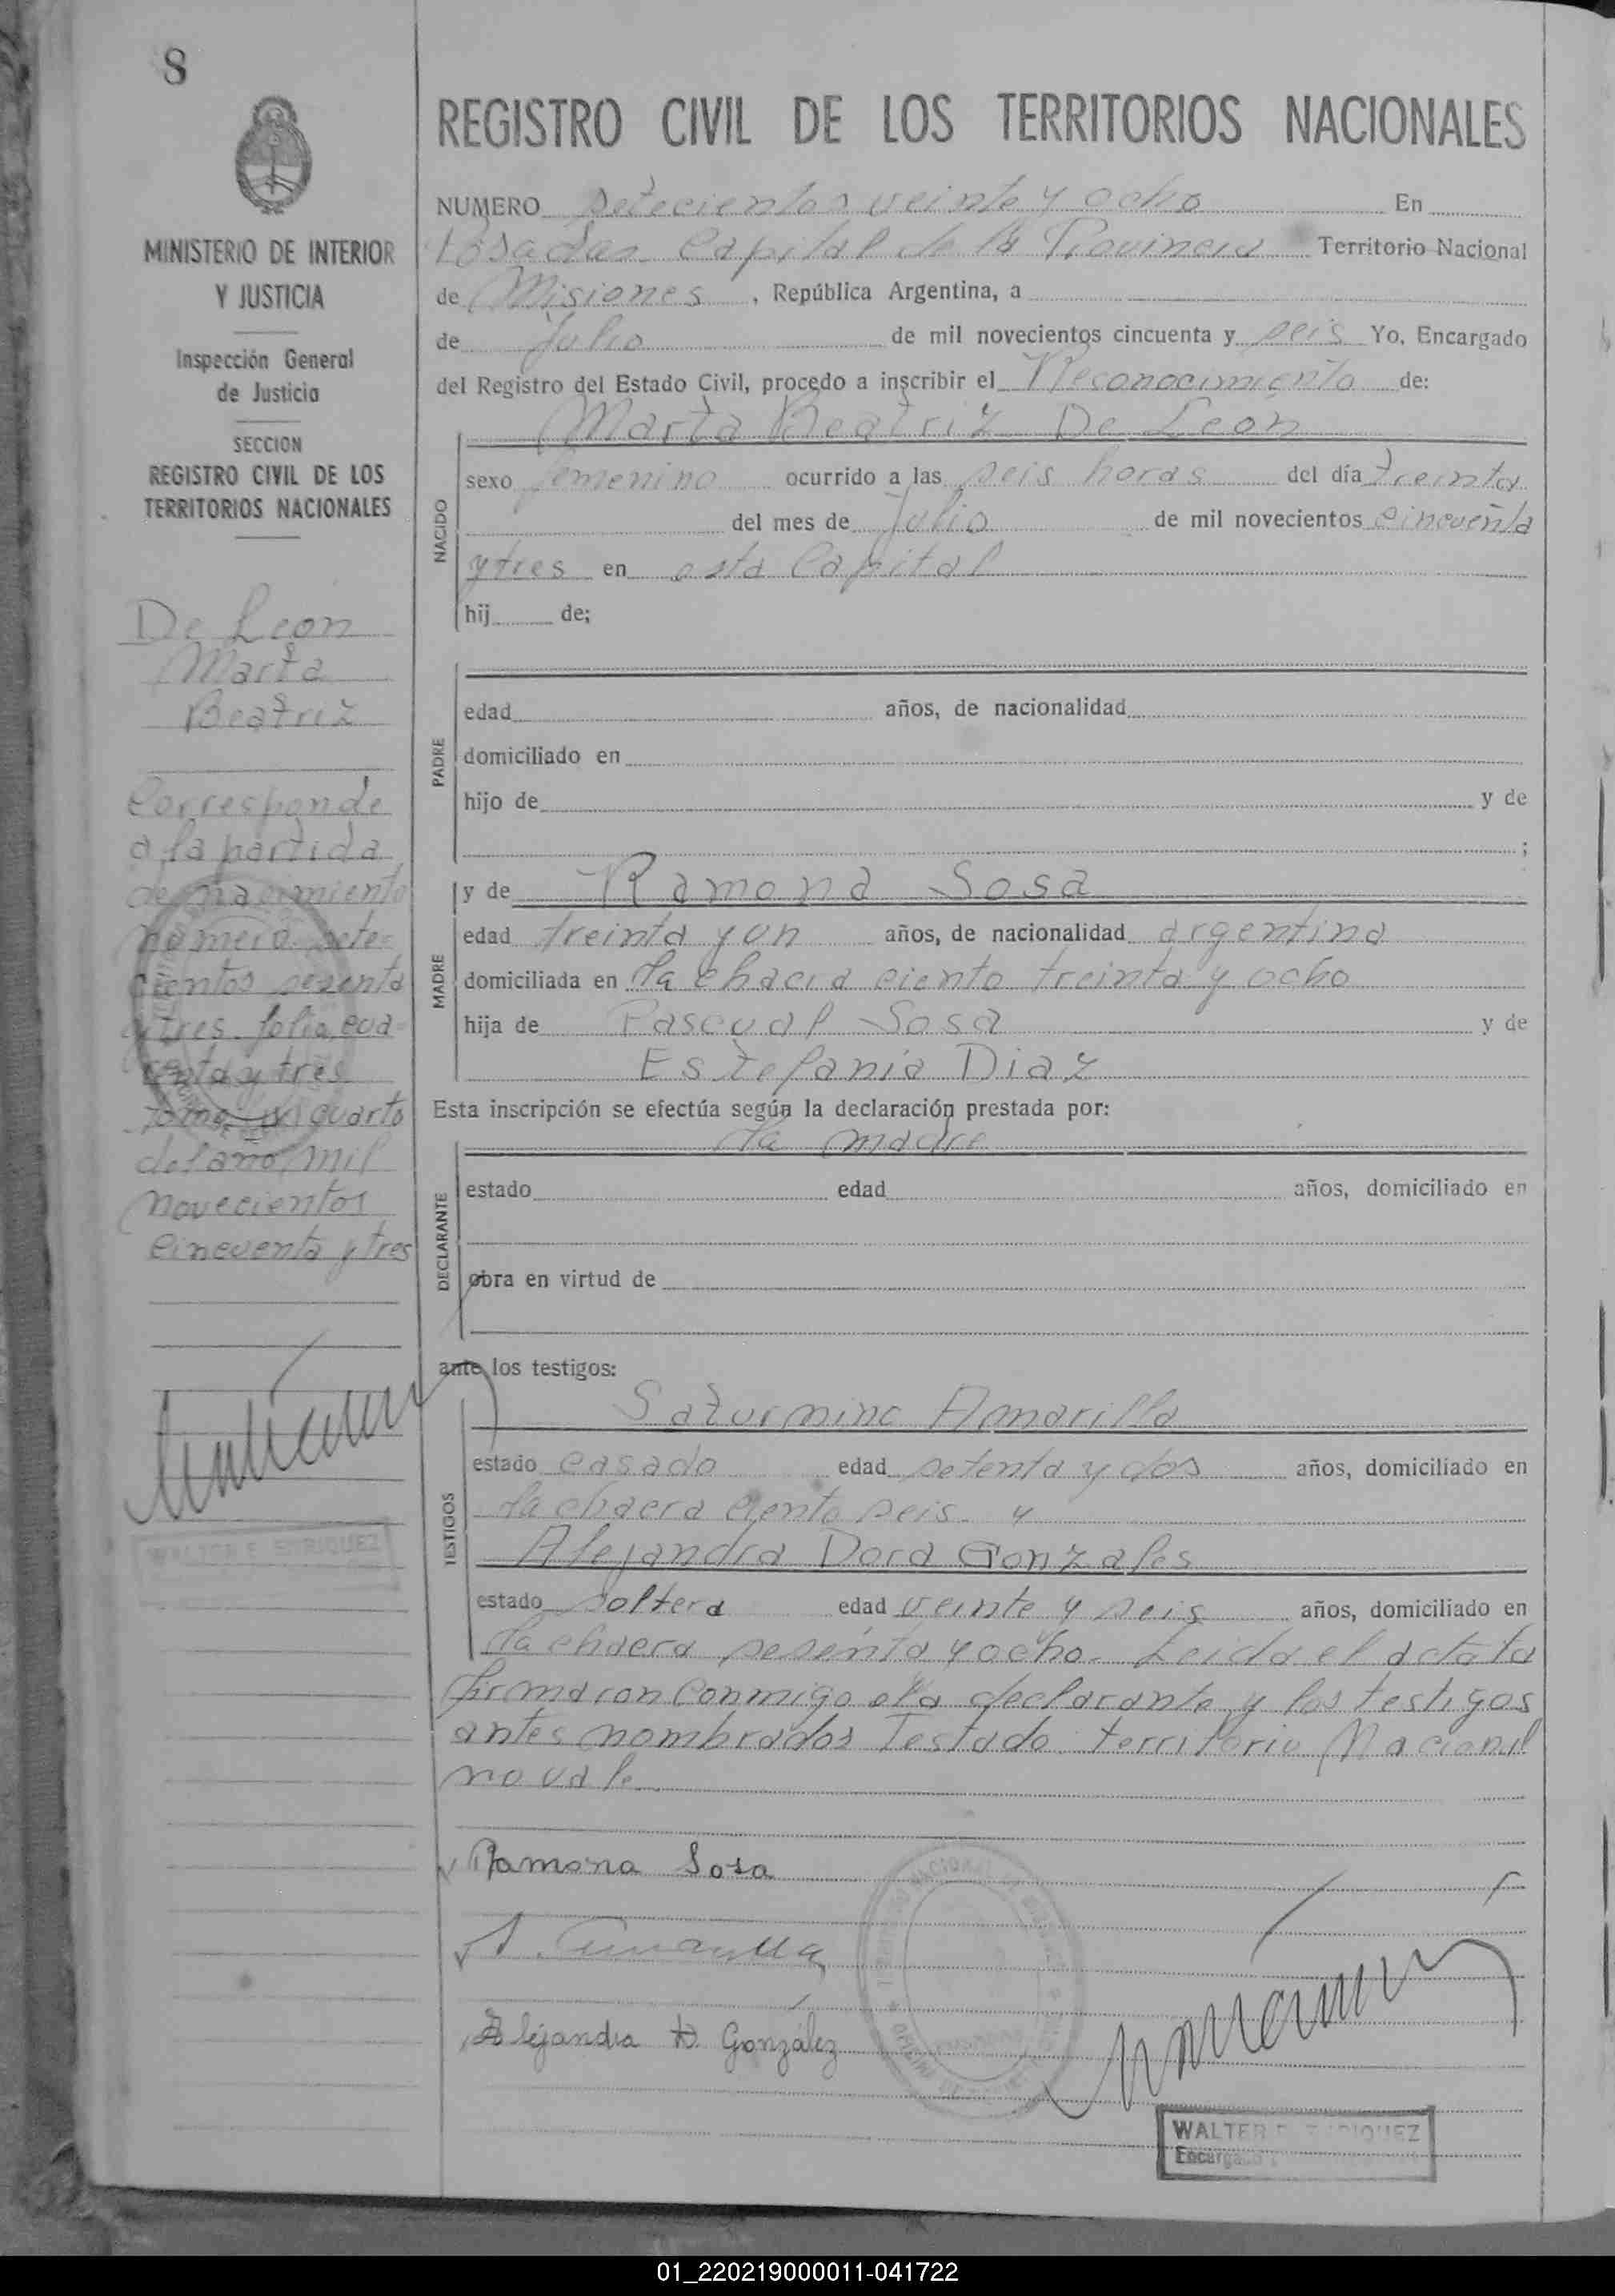 8
MINISTERIO DE INTERIOR
Y JUSTICIA
Inspección General
de Justicia
SECCION
REGISTRO CIVIL DE LOS
TERRITORIOS NACIONALES
De Leon
Marta
Beatriz
Corresponde
a la partida
de nacimiento
número sete=
cientos sesenta
y tres folio cua=
renta y tres
tomo cuarto
del año mil
novecientos
cincuenta y tres
WALTER E. ENRIQUEZ
REGISTRO CIVIL DE LOS TERRITORIOS NACIONALES
NUMERO setecientos veinte y ocho En
Posadas Capital de la Provincia Territorio Nacional
de Misiones , República Argentina, a
de Julio de mil novecientos cincuenta y seis Yo, Encargado
del Registro del Estado Civil, procedo a inscribir el Reconocimiento de:
Marta Beatriz De Leon
NACIDO
sexo femenino ocurrido a las seis horas del día treinta
del mes de Julio de mil novecientos cincuenta
y tres en esta Capital
hij de;
PADRE
edad años, de nacionalidad
domiciliado en
hijo de y de
;
y de Ramona Sosa
MADRE
edad treinta y un años, de nacionalidad argentina
domiciliada en la chacra ciento treinta y ocho
hija de Pascual Sosa y de
Estefania Diaz
Esta inscripción se efectúa según la declaración prestada por:
la madre
DECLARANTE
estado edad años, domiciliado en
obra en virtud de
ante los testigos:
Saturnino Amarilla
TESTIGOS
estado casado edad setenta y dos años, domiciliado en
la chacra ciento seis y
Alejandra Dora Gonzales
estado soltera edad veinte y seis años, domiciliado en
la chacra sesenta y ocho. Leida el acta la
firmaron conmigo la declarante y los testigos
antes nombrados Testado: territorio Nacional
no vale
Ramona Sosa
Alejandra D. González
WALTER E. ENRIQUEZ
Encargado
01_220219000011-041722